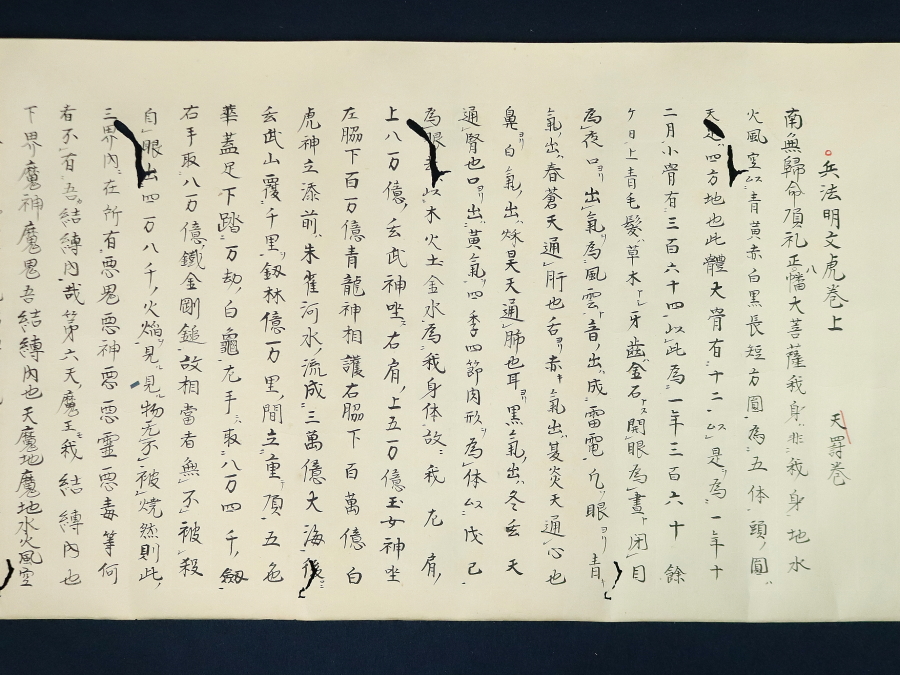 兵法明文虎巻上　天罸巻
南無歸命頂礼正八幡大菩薩我身非我身地水
火風空以青黄赤白黒長短方圓為五体頭圓
天也四方地也此體大骨有十二以是為一年十
二月小骨有三百六十四以此為一年三百六十餘
ケ日上青毛髪草木ト牙齒金石トス開眼為晝ト閉目
為夜口ヨリ出氣為風雲音出成雷電左眼ヨリ青
氣出春蒼天通肝也右ヨリ赤キ氣出夏炎天通心也
鼻ヨリ白氣出秋昊天通肺也耳ヨリ黒氣出冬玄天
通腎也口ヨリ出黄氣四季四節肉形為体以戊己
為眼 以木火土金水為我身体故我左肩
上八万億玄武神坐右肩上五万億玉女神坐
左脇下百万億青龍神相護右脇下百萬億白
虎神立漆前朱雀河水流成三萬億大海後
玄武山覆千里釼林億万里間立重頂五色
華蓋足下踏万劫白龜左手取八万四千劔
右手取八万億鐵金剛鎚故相當者無不被殺
自眼出四万八千火焔見見物无不被燒然則此
三界内在所有悪鬼悪神悪霊悪毒等何
者不有吾結縛内哉第六天魔王我結縛内也
下界魔神魔鬼吾結縛内也天魔地魔地水火風空